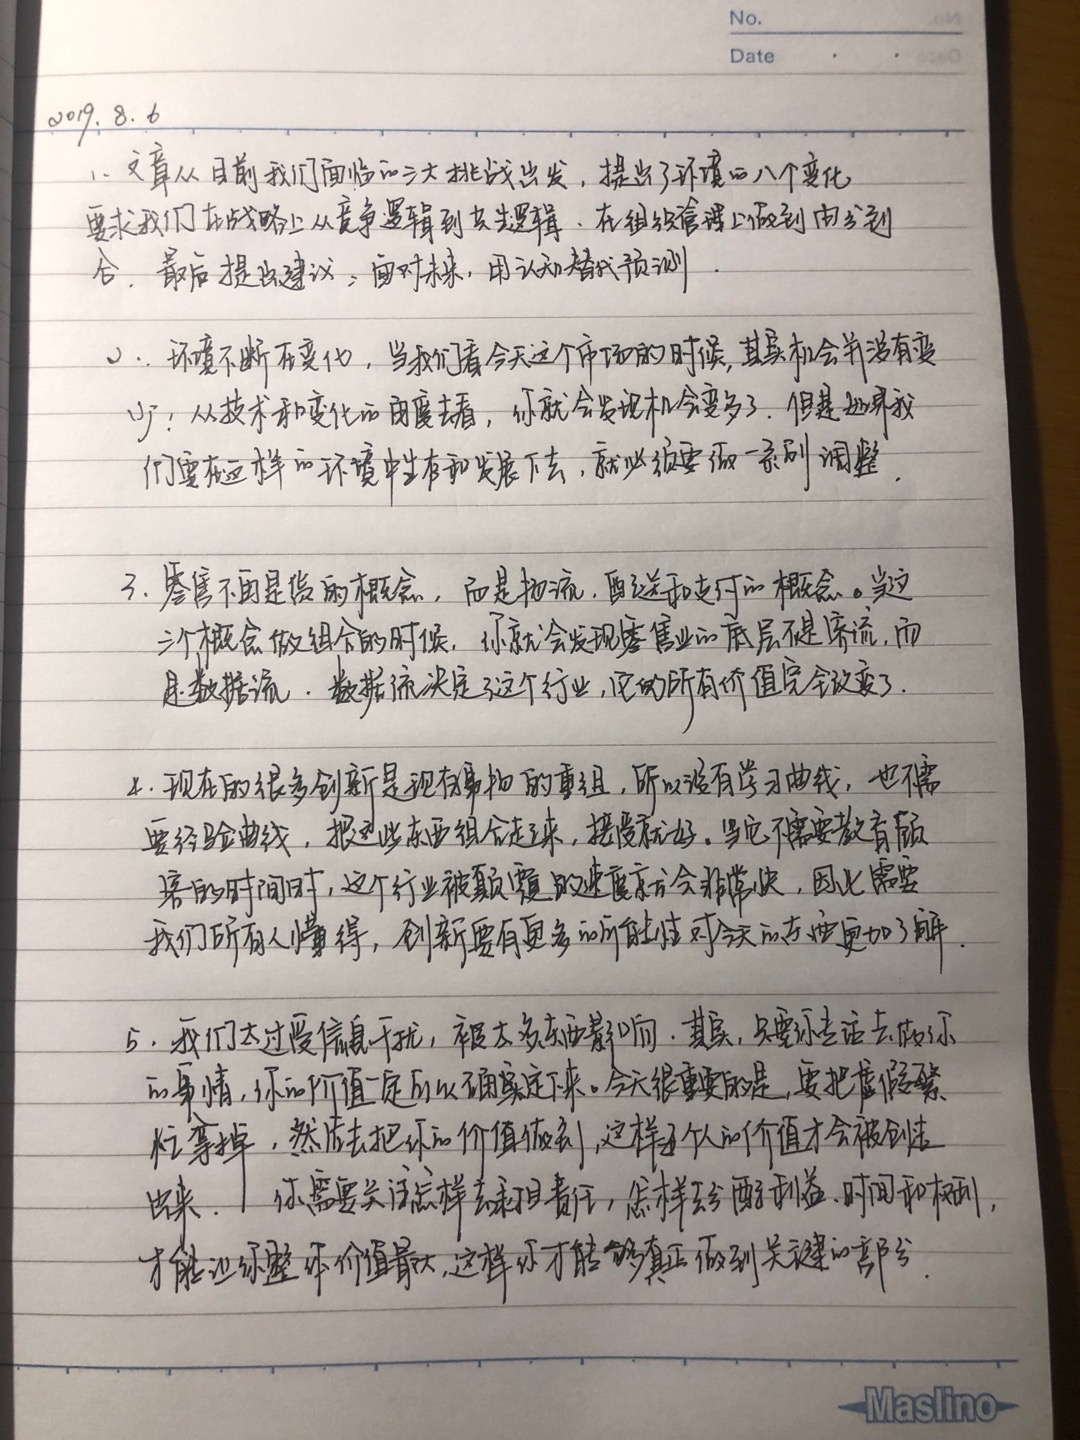 No.
Date
2019.8.6
1. 文章从目前我们面临的三大挑战出发，提出了环境的八个变化
要求我们在战略上从竞争逻辑到共生逻辑．在组织管理上做到由分到
合．最后提出建议：面对未来，用认知替代预测．
2．环境不断在变化，当我们看今天这个市场的时候，其实机会并没有变
少；从技术和变化的角度去看，你就会发现机会变多了．但是如果我
们要在这样的环境中生存和发展下去，就必须要做一系列调整．
3．零售不再是货的概念，而是物流．配送和支付的概念。当这
三个概念做组合的时候．你就会发现零售业的底层不是客流，而
是数据流．数据流决定了这个行业，它的所有价值完全改变了．
4．现在的很多创新是现有事物的重组，所以没有学习曲线，也不需
要经验曲线，把这些东西组合起来，接受就好。当它不需要教育顾
客的时间时，这个行业被颠覆的速度就会非常快，因此需要
我们所有人懂得，创新要有更多的可能性对今天的东西更加了解．
5．我们太过受信息干扰，被太多东西影响．其实，只要你去话去做你
的事情，你的价值一定可以确实定下来。今天很重要的是，要把虚假繁
忙拿掉，然后去把你的价值做到，这样每个人的价值才会被创造
出来． 你需要关注怎样去承担责任，怎样去分配利益、时间和权利，
才能让你整体价值最大，这样你才能够真正做到关键的部分．
Maslino